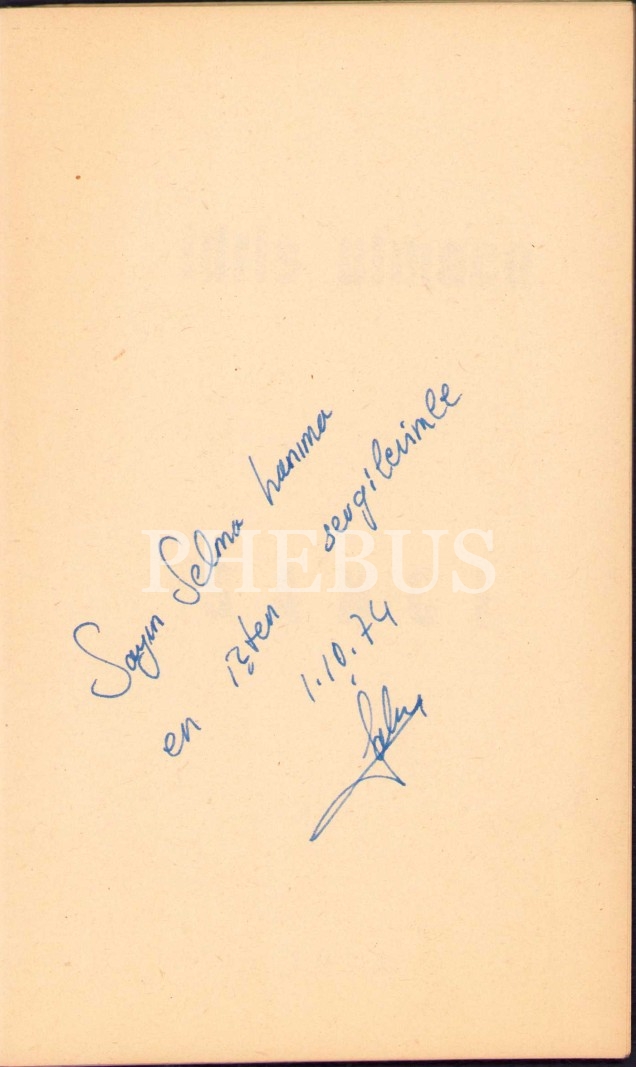 Sayın Selma hanıma
en içten sevgilerimle
1.10.74
PHEBUS